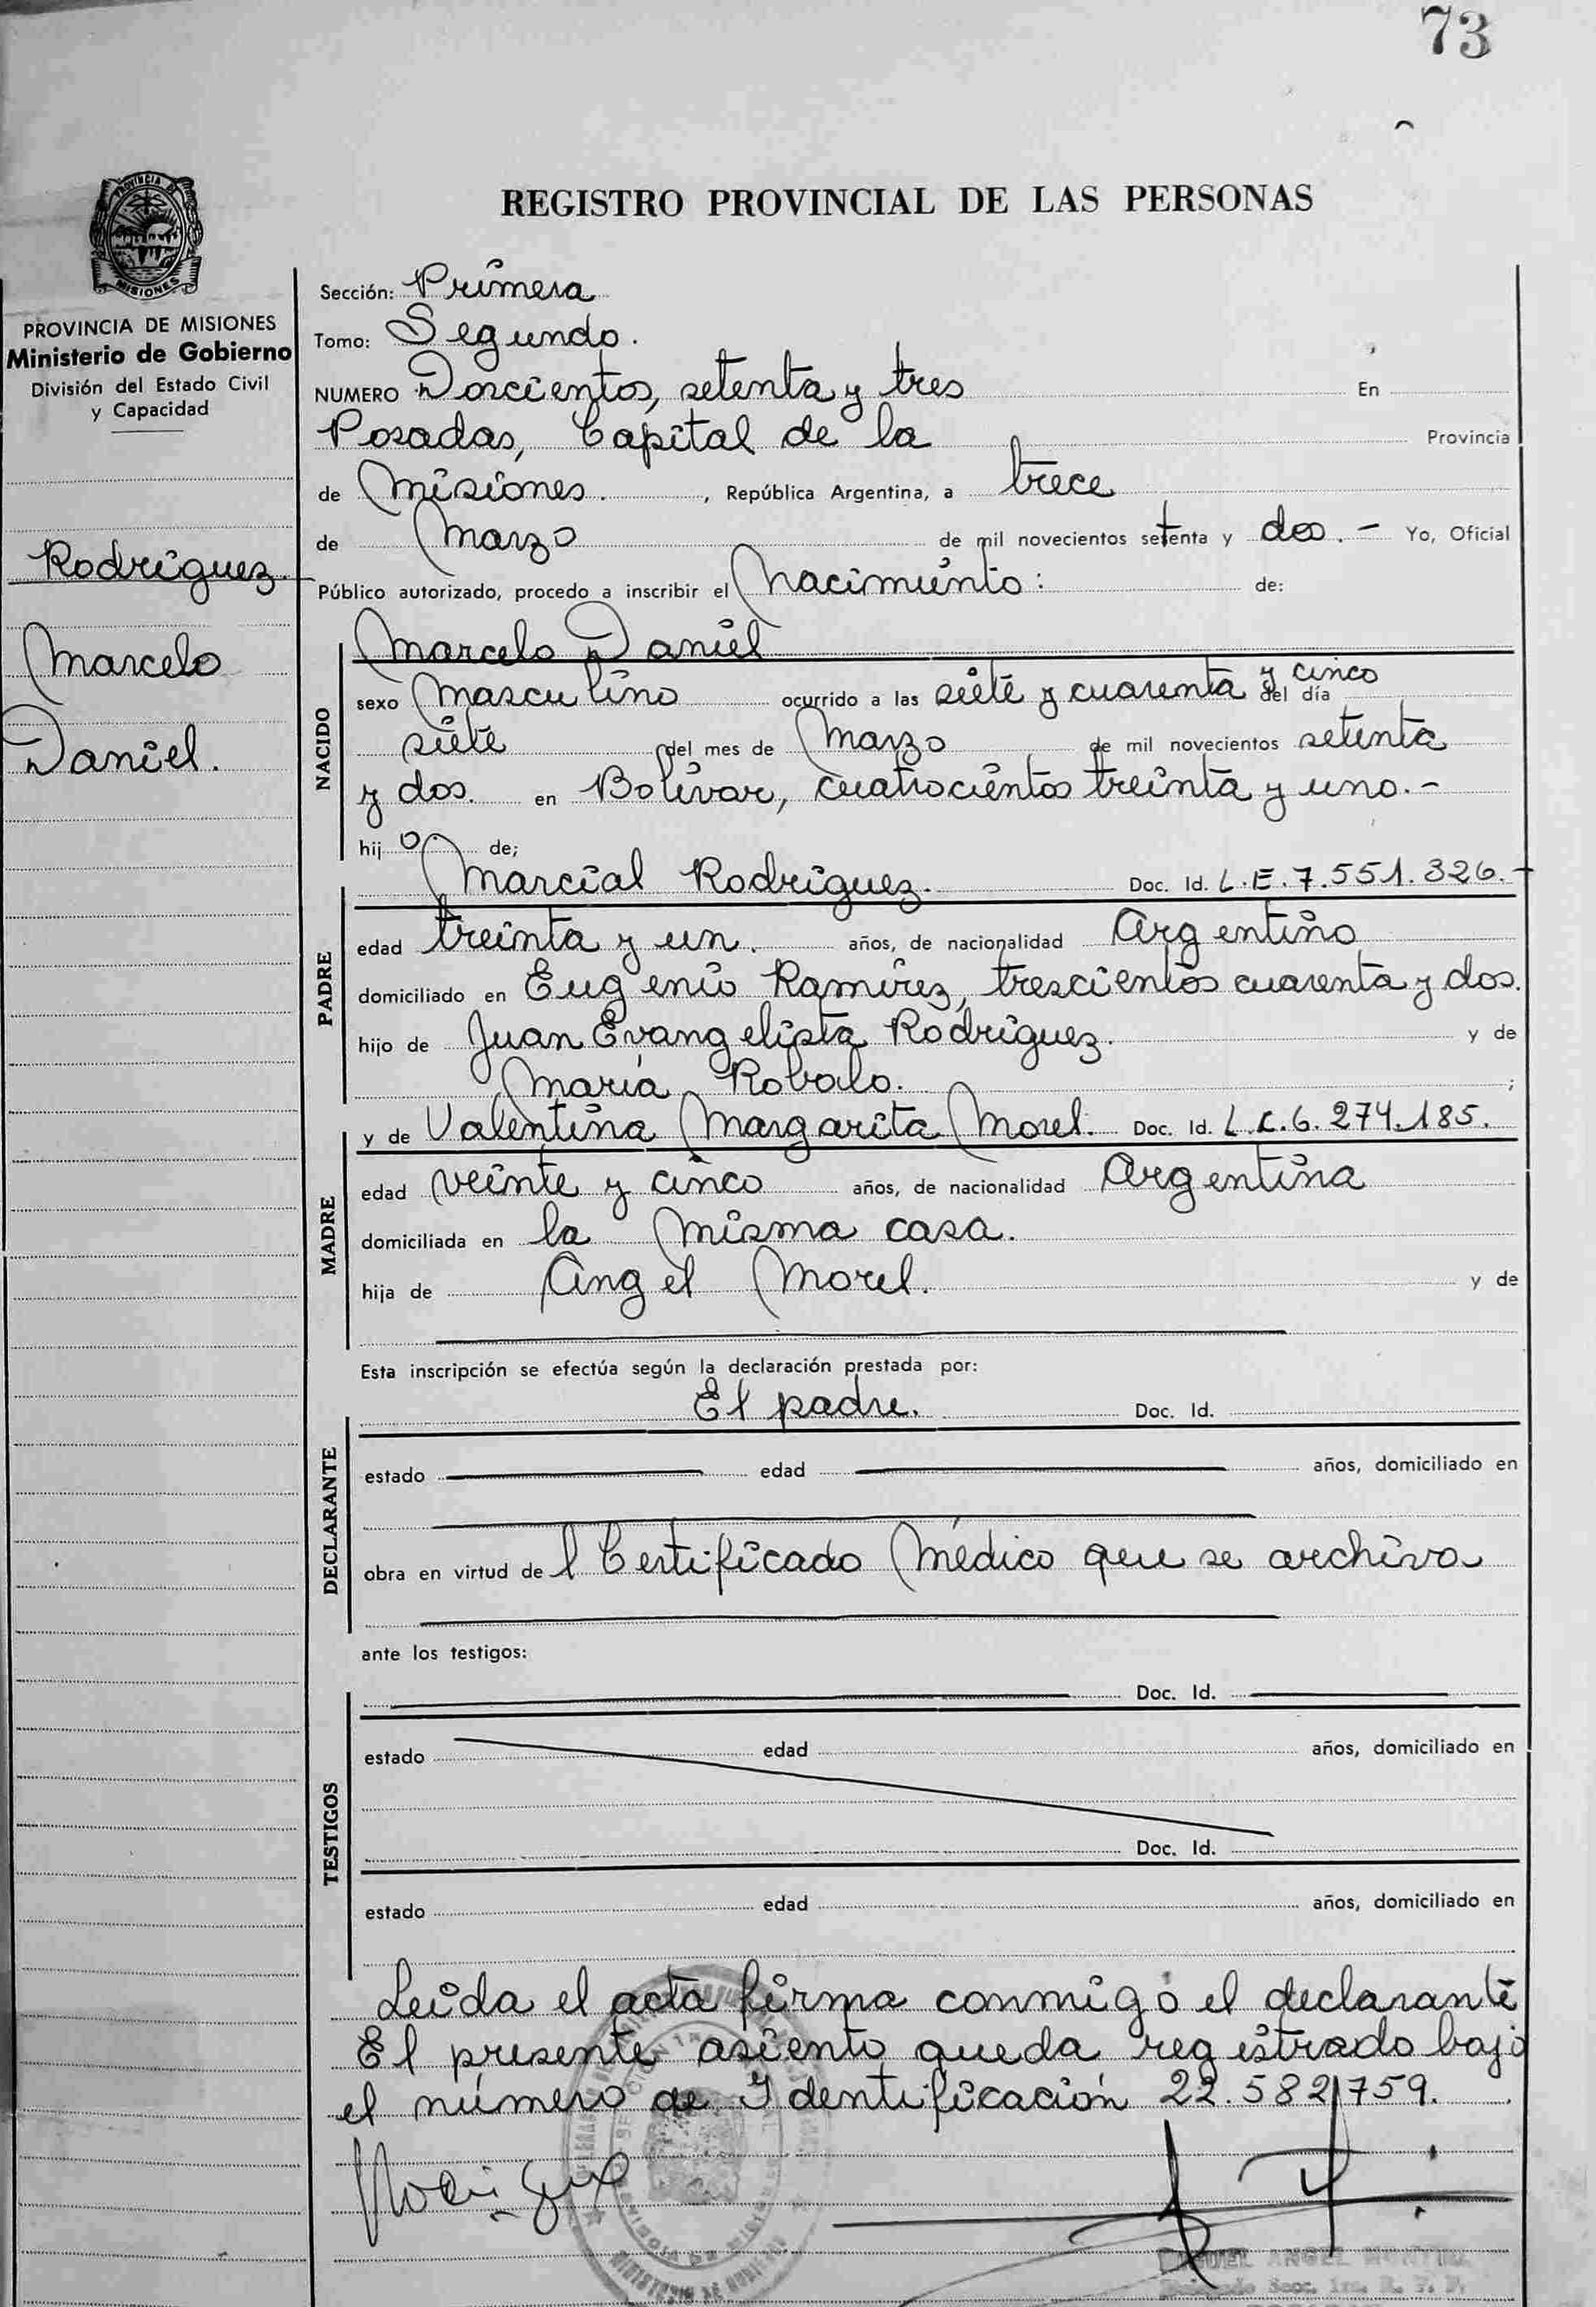 73
REGISTRO PROVINCIAL DE LAS PERSONAS
PROVINCIA DE
MISIONES
PROVINCIA DE MISIONES
Ministerio de Gobierno
División del Estado Civil
y Capacidad
Rodríguez
Marcelo
Daniel.
Sección: Primera
Tomo: Segundo.
NUMERO Doscientos, setenta y tres En
Posadas, Capital de la Provincia
de Misiones. , República Argentina, a trece
de Marzo de mil novecientos setenta y dos. - Yo, Oficial
Público autorizado, procedo a inscribir el Nacimiento: de:
NACIDO
Marcelo Daniel
sexo Masculino ocurrido a las siete y cuarenta y cinco del día
siete del mes de Marzo de mil novecientos setenta
y dos. en Bolívar, cuatrocientos treinta y uno.-
hij o. de;
PADRE
Marcial Rodríguez. Doc. Id. L.E.7.551.326.-
edad treinta y un. años, de nacionalidad Argentino
domiciliado en Eugenio Ramírez, trescientos cuarenta y dos.
hijo de Juan Evangelista Rodríguez. y de
María Robalo. ;
MADRE
y de Valentina Margarita Morel. Doc. Id. L.C.6.274.185.
edad veinte y cinco años, de nacionalidad Argentina
domiciliada en la misma casa.
hija de Angel Morel. y de
Esta inscripción se efectúa según la declaración prestada por:
DECLARANTE
El padre. Doc. Id.
estado edad años, domiciliado en
obra en virtud de l Certificado Médico que se archiva
ante los testigos:
TESTIGOS
Doc. Id.
estado edad años, domiciliado en
Doc. Id.
estado edad años, domiciliado en
Leída el acta firma conmigo el declarante
El presente asiento queda registrado bajo
el número de Identificación 22.582.759.
Rodríguez
ANGEL